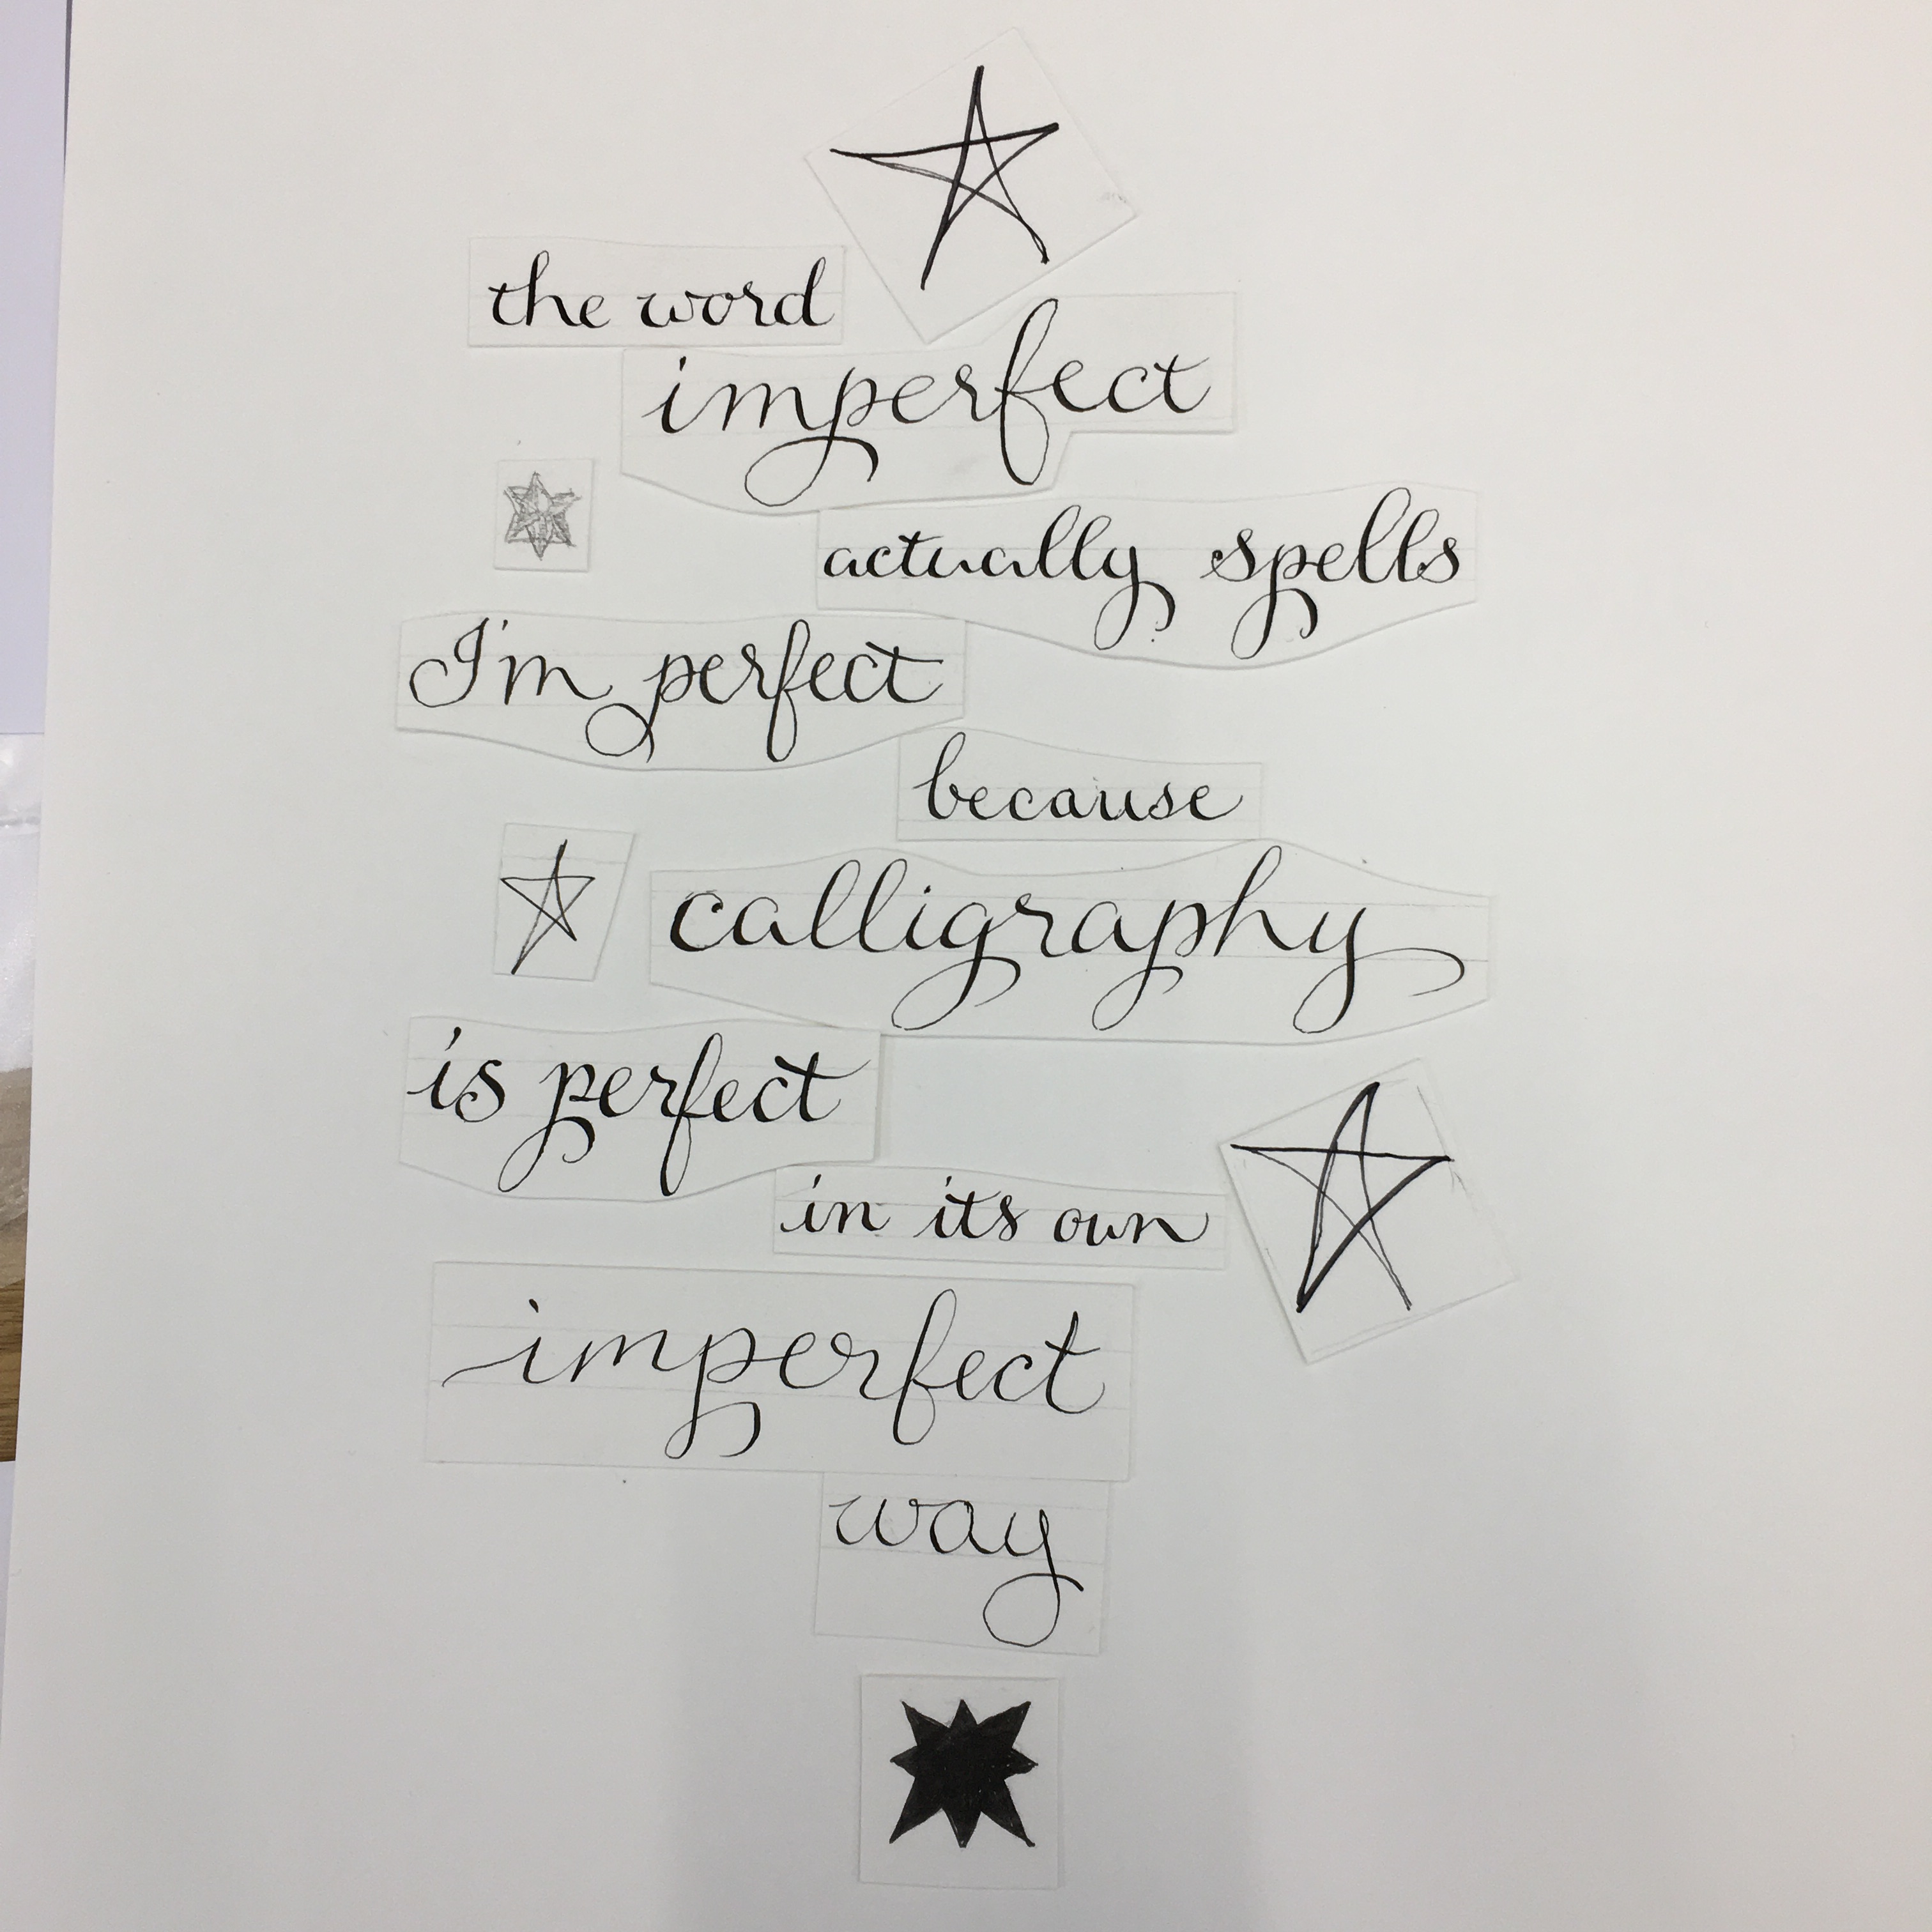 the word
imperfect
actually spells
I'm perfect
because
calligraphy
is perfect
in its own
imperfect
way